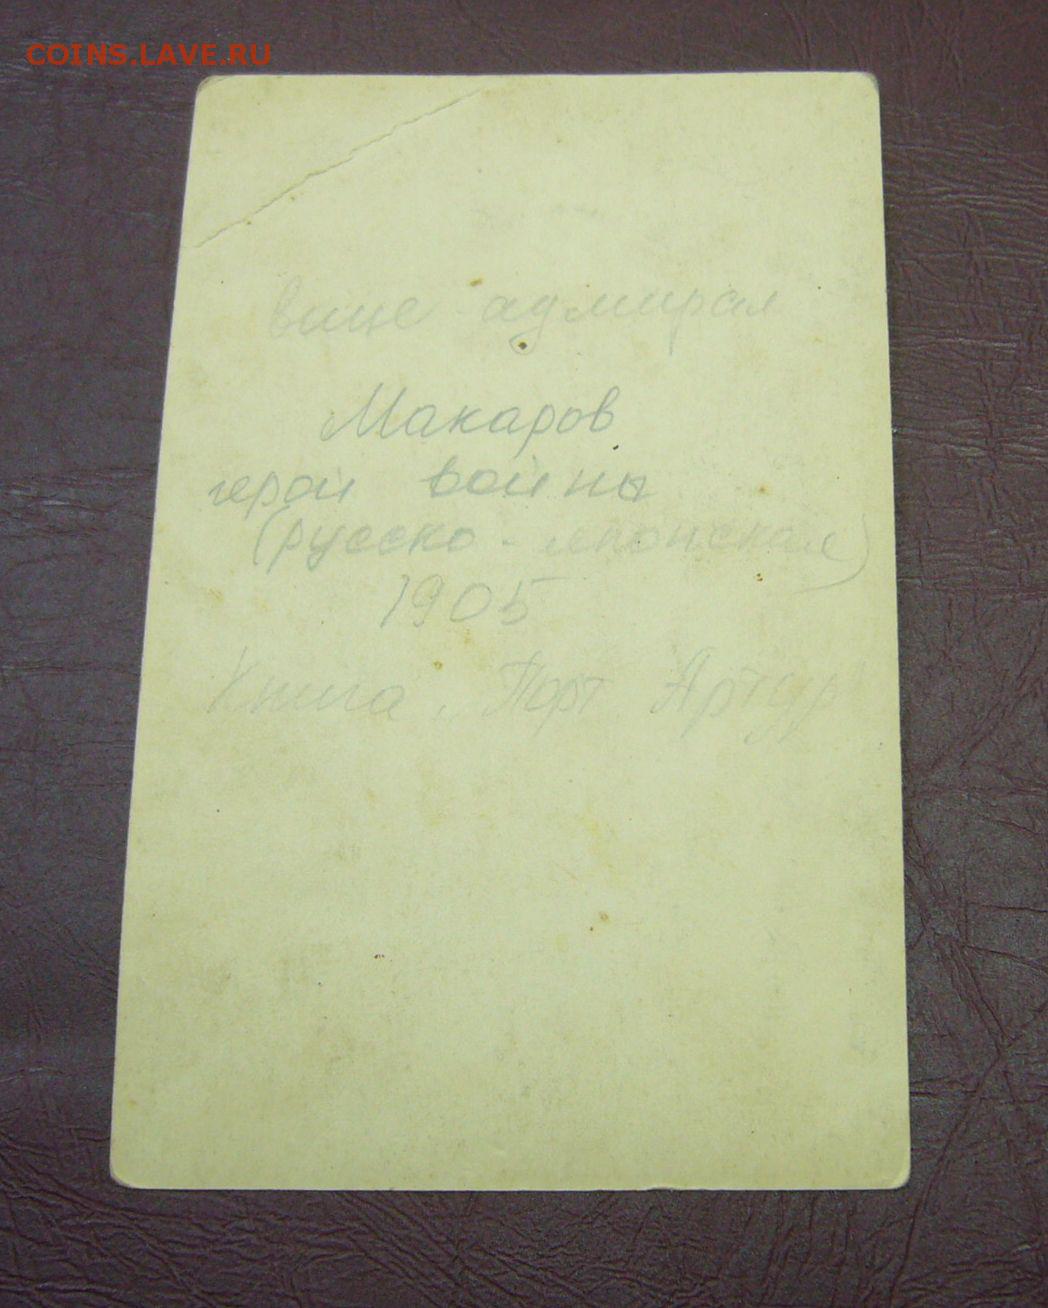 COINS.LAVE.RU
вице адмирал
Макаров
герой войны
(русско - японская)
1905
Книга „Порт Артур"